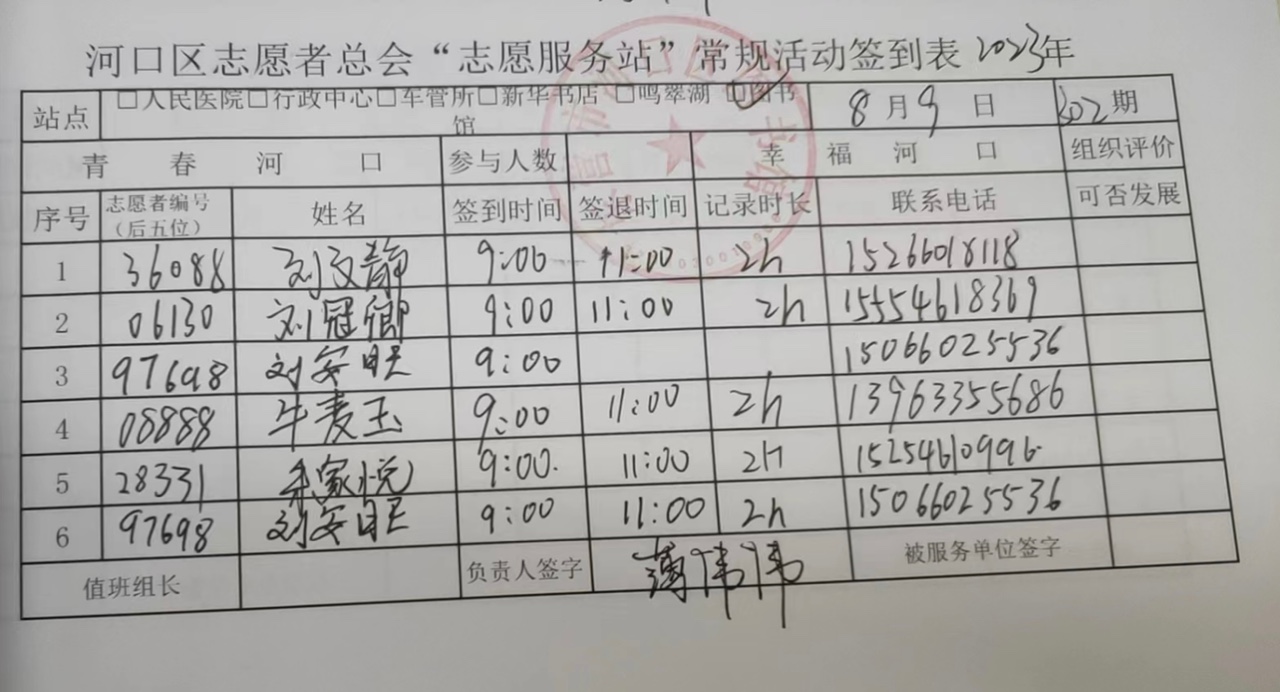 河口区志愿者总会“志愿服务站”常规活动签到表 2023年
站点 □人民医院□行政中心□车管所□新华书店 □鸣翠湖 ☑图书馆 8月9日 302期
青春河口 参与人数 幸福河口 组织评价
序号 志愿者编号（后五位） 姓名 签到时间 签退时间 记录时长 联系电话 可否发展
1 36088 刘文静 9:00 11:00 2h 15266018118
2 06130 刘冠卿 9:00 11:00 2h 15554618369
3 97698 刘安 9:00 15066025536
4 08888 牛麦玉 9:00 11:00 2h 13963355686
5 28331 家悦 9:00 11:00 2h 15254610996
6 97698 刘安 9:00 11:00 2h 15066025536
值班组长 负责人签字 薄伟伟 被服务单位签字